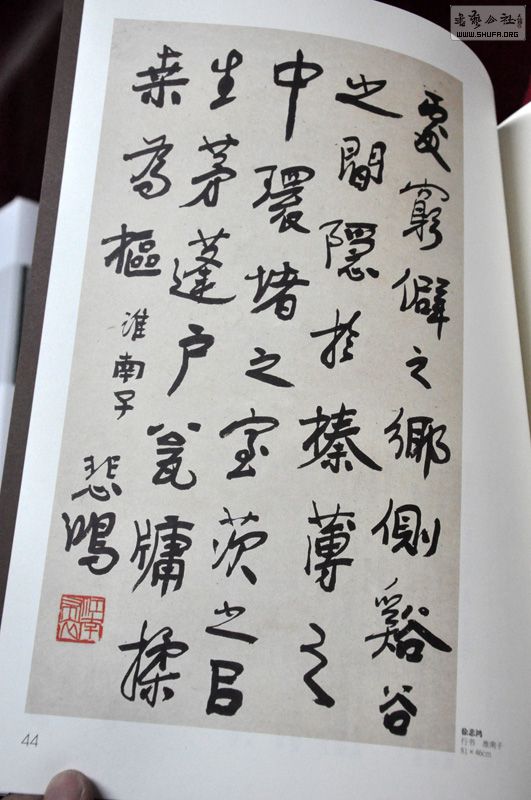 處窮僻之鄉側谿谷
之間隱扵榛薄之
中環堵之室茨之㠯
生茅蓬户瓮牖揉
桑為樞 淮南子
悲鴻
44
徐悲鸿
行书 淮南子
81×46cm
WWW.SHUFA.ORG